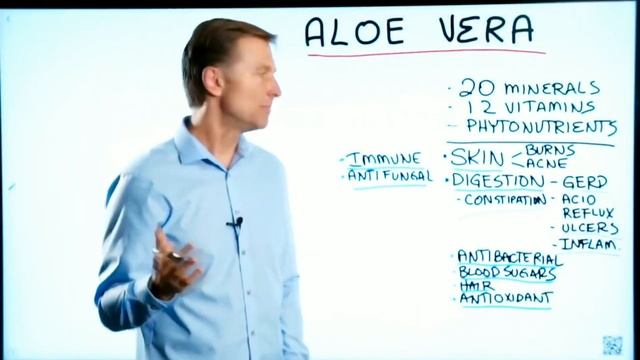 ALOE VERA
· 20 MINERALS
· 12 VITAMINS
- PHYTONUTRIENTS
· IMMUNE
· ANTIFUNGAL
· SKIN < BURNS
ACNE
· DIGESTION - GERD
- CONSTIPATION - ACID
REFLUX
- ULCERS
- INFLAM.
· ANTIBACTERIAL
· BLOOD SUGARS
· HAIR
· ANTIOXIDANT